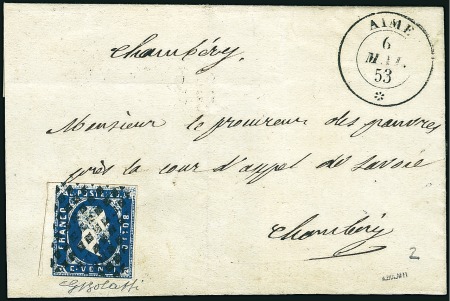 AIME
6
MAI.
53
Chambéry,
Monsieur le procureur des pauvres
près la cour d'appel de Savoie
Chambéry
FRANCO
C. VENTI
2